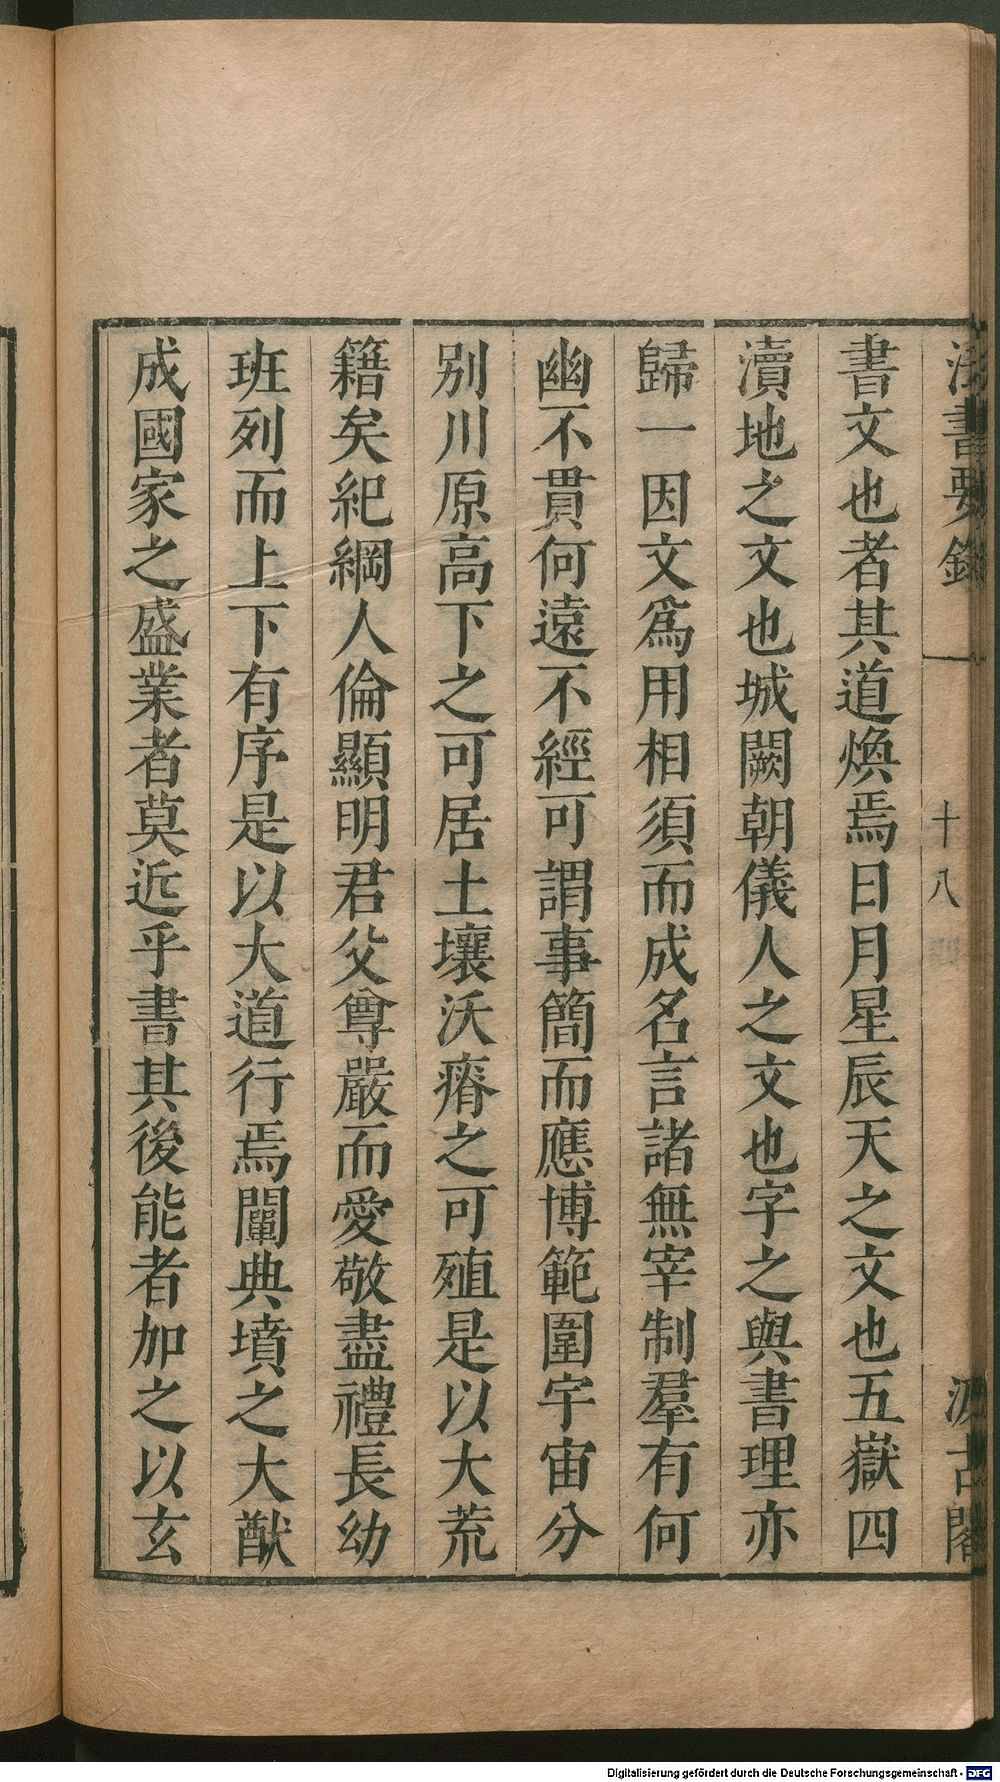 法書要錄
十八
汲古閣
書文也者其道煥焉日月星辰天之文也五嶽四
瀆地之文也城闕朝儀人之文也字之與書理亦
歸一因文爲用相須而成名言諸無宰制羣有何
幽不貫何遠不經可謂事簡而應博範圍宇宙分
别川原高下之可居土壤沃瘠之可殖是以大荒
籍矣紀綱人倫顯明君父尊嚴而愛敬盡禮長幼
班列而上下有序是以大道行焉闡典墳之大猷
成國家之盛業者莫近乎書其後能者加之以玄
Digitalisierung gefördert durch die Deutsche Forschungsgemeinschaft - DFG